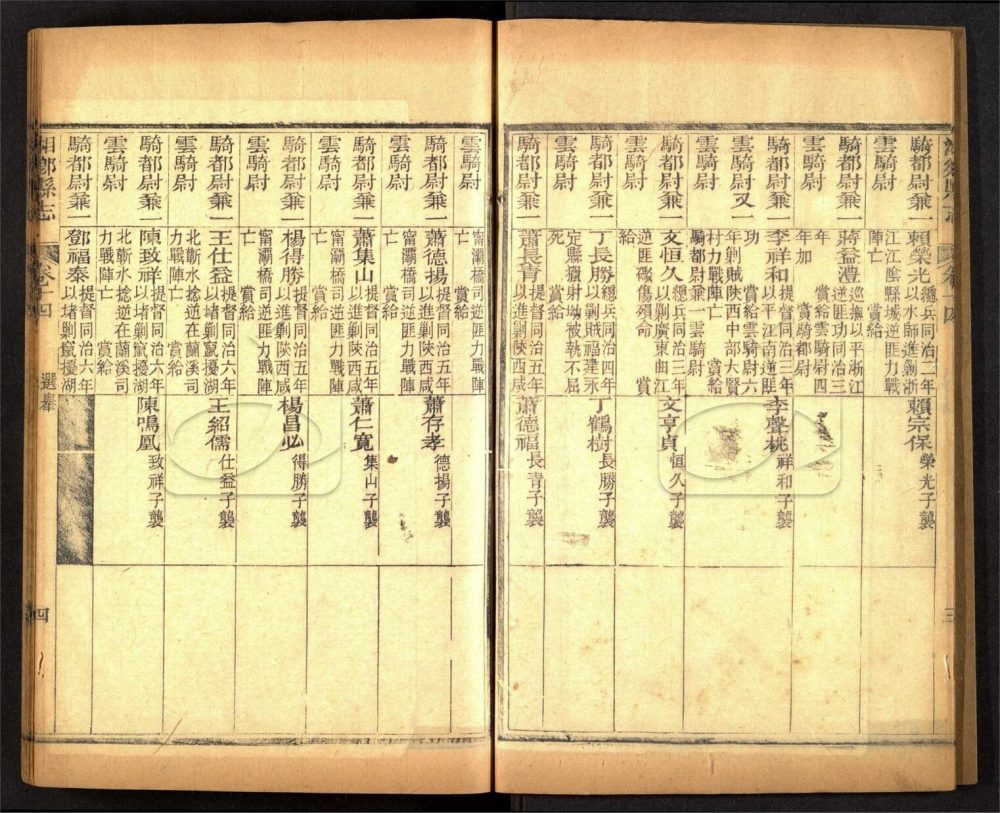 騎都尉兼一 賴榮光 總兵同治二年 以水師進剿浙 賴宗保 榮光子襲
雲騎尉 江江陰縣城逆匪力戰 陣亡 賞給
騎都尉兼一 蔣益澧 巡撫以平浙江 逆匪功同治三
雲騎尉 年 賞給雲騎尉四 年加 賞騎都尉
騎都尉兼一 李祥和 提督同治三年 以平江南逆匪 李聲桃 祥和子襲
雲騎尉又一 功 賞給雲騎尉六 年剿賊陝西中部大賢
雲騎尉 村力戰陣亡 賞給 騎都尉兼一雲騎尉
騎都尉兼一 文恒久 總兵同治三年 以剿廣東曲江 文亨貞 恒久子襲
雲騎尉 逆匪礮傷殞命 賞 給
騎都尉兼一 丁長勝 總兵同治四年 以剿賊福建永 丁鶴樹 長勝子襲
雲騎尉 定縣獺射坳被執不屈 死 賞給
騎都尉兼一 蕭長青 提督同治五年 以進剿陝西咸 蕭德福 長青子襲
三
雲騎尉 甯灞橋司逆匪力戰陣 亡 賞給
騎都尉兼一 蕭德揚 提督同治五年 以進剿陝西咸 蕭存孝 德揚子襲
雲騎尉 甯灞橋司逆匪力戰陣 亡 賞給
騎都尉兼一 蕭集山 提督同治五年 以進剿陝西咸 蕭仁寬 集山子襲
雲騎尉 甯灞橋司逆匪力戰陣 亡 賞給
騎都尉兼一 楊得勝 提督同治五年 以進剿陝西咸 楊昌必 得勝子襲
雲騎尉 甯灞橋司逆匪力戰陣 亡 賞給
騎都尉兼一 王仕益 提督同治六年 以堵剿竄擾湖 王紹儒 仕益子襲
雲騎尉 北蘄水捻逆在蘭溪司 力戰陣亡 賞給
騎都尉兼一 陳致祥 提督同治六年 以堵剿竄擾湖 陳鳴鳳 致祥子襲
雲騎尉 北蘄水捻逆在蘭溪司 力戰陣亡 賞給
騎都尉兼一 鄧福泰 提督同治六年 以堵剿竄擾湖
湘鄉縣志 卷十四 選舉 四